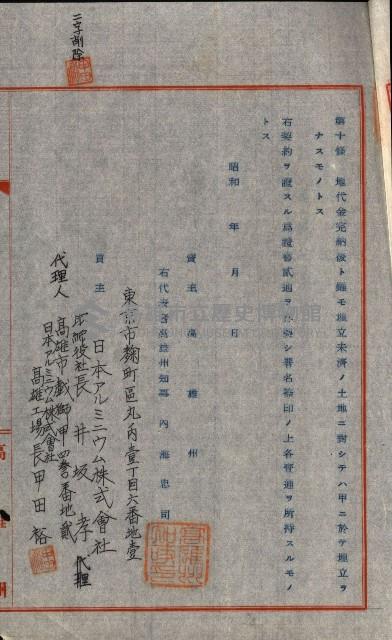 二字削除
第十條 地代金完納後ト雖モ埋立未濟ノ土地ニ對シテハ甲ニ於テ埋立ヲ
ナスモノトス
右契約ヲ證スル爲證書貳通ヲ作製シ署名捺印ノ上各壹通ヲ所持スルモノ
トス
昭和 年 月 日
賣主 高雄州
右代表者高雄州知事 內海忠司
東京市麴町區丸ノ內壹丁目六番地壹
買主 日本アルミニウム株式會社
取締役社長 井坂孝 代理
高雄市戲獅甲四參番地貳
代理人 日本アルミニウム株式會社
高雄工場長 甲田裕
高雄州